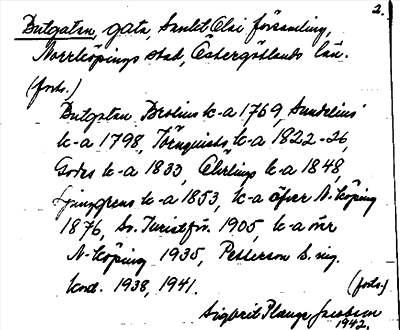 2.
Butgatan, gata, Sankt Olai församling,
Norrköpings stad, Östergötlands län.
(forts.)
Butgatan Brolins k-a 1769, Sundelius'
k-a 1798, Törnquists k-a 1822-26,
Godes k-a 1833, k-a 1848,
Ljunggrens k-a 1853, k-a över N-köping
1876, Sv. Turistför. 1905, k-a över
N-köping 1935, Petterson
1938, 1941.
(forts.)
Sigbrit Plænge Jacobson
1942.